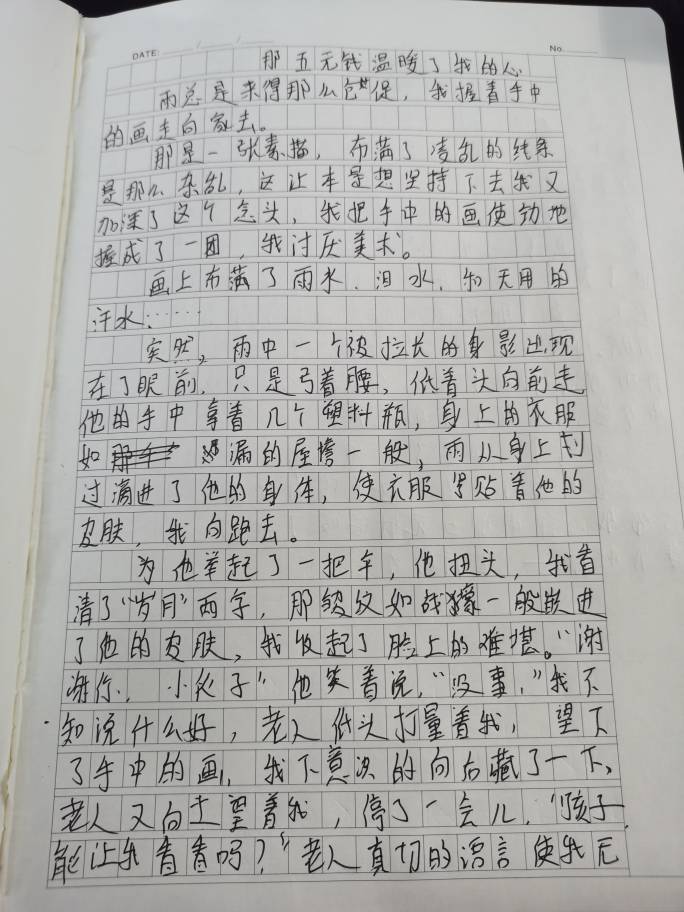 DATE: / /
No
那五元钱温暖了我的心
雨总是来得那么仓促，我握着手中
的画走向家去。
那是一张素描，布满了凌乱的线条
是那么杂乱，这让本是想坚持下去我又
加深了这个念头，我把手中的画使劲地
握成了一团，我讨厌美术。
画上布满了雨水、泪水，和无用的
汗水……
突然，雨中一个被拉长的身影出现
在了眼前，只是弓着腰，低着头向前走
他的手中拿着几个塑料瓶，身上的衣服
如漏的屋檐一般，雨从身上划
过滴进了他的身体，使衣服紧贴着他的
皮肤，我向跑去。
为他举起了一把伞，他扭头，我看
清了“岁月”两字，那皱纹如战壕一般嵌进
了他的皮肤，我收起了脸上的难堪。“谢
谢你，小伙子”他笑着说，“没事，”我不
知说什么好，老人低头打量着我，望下
了手中的画，我下意识的向后藏了一下，
老人又向上望着我，停了一会儿，“孩子，
能让我看看吗？”老人真切的语言使我无